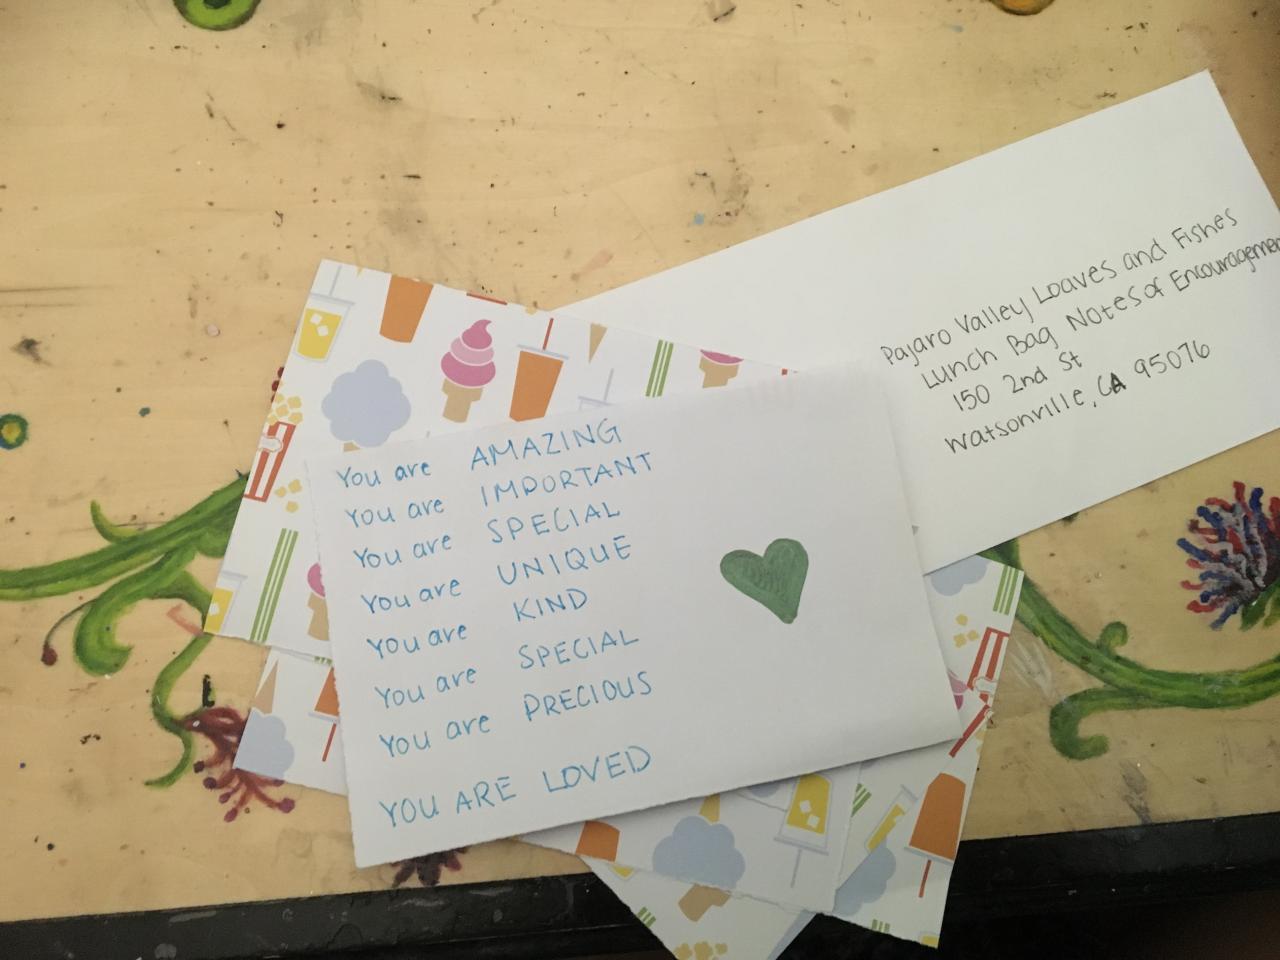 You are AMAZING
You are IMPORTANT
You are SPECIAL
You are UNIQUE
You are KIND
You are SPECIAL
You are PRECIOUS
YOU ARE LOVED
Pajaro Valley Loaves and Fishes
Lunch Bag Notes of Encouragemen
150 2nd St
Watsonville, CA 95076